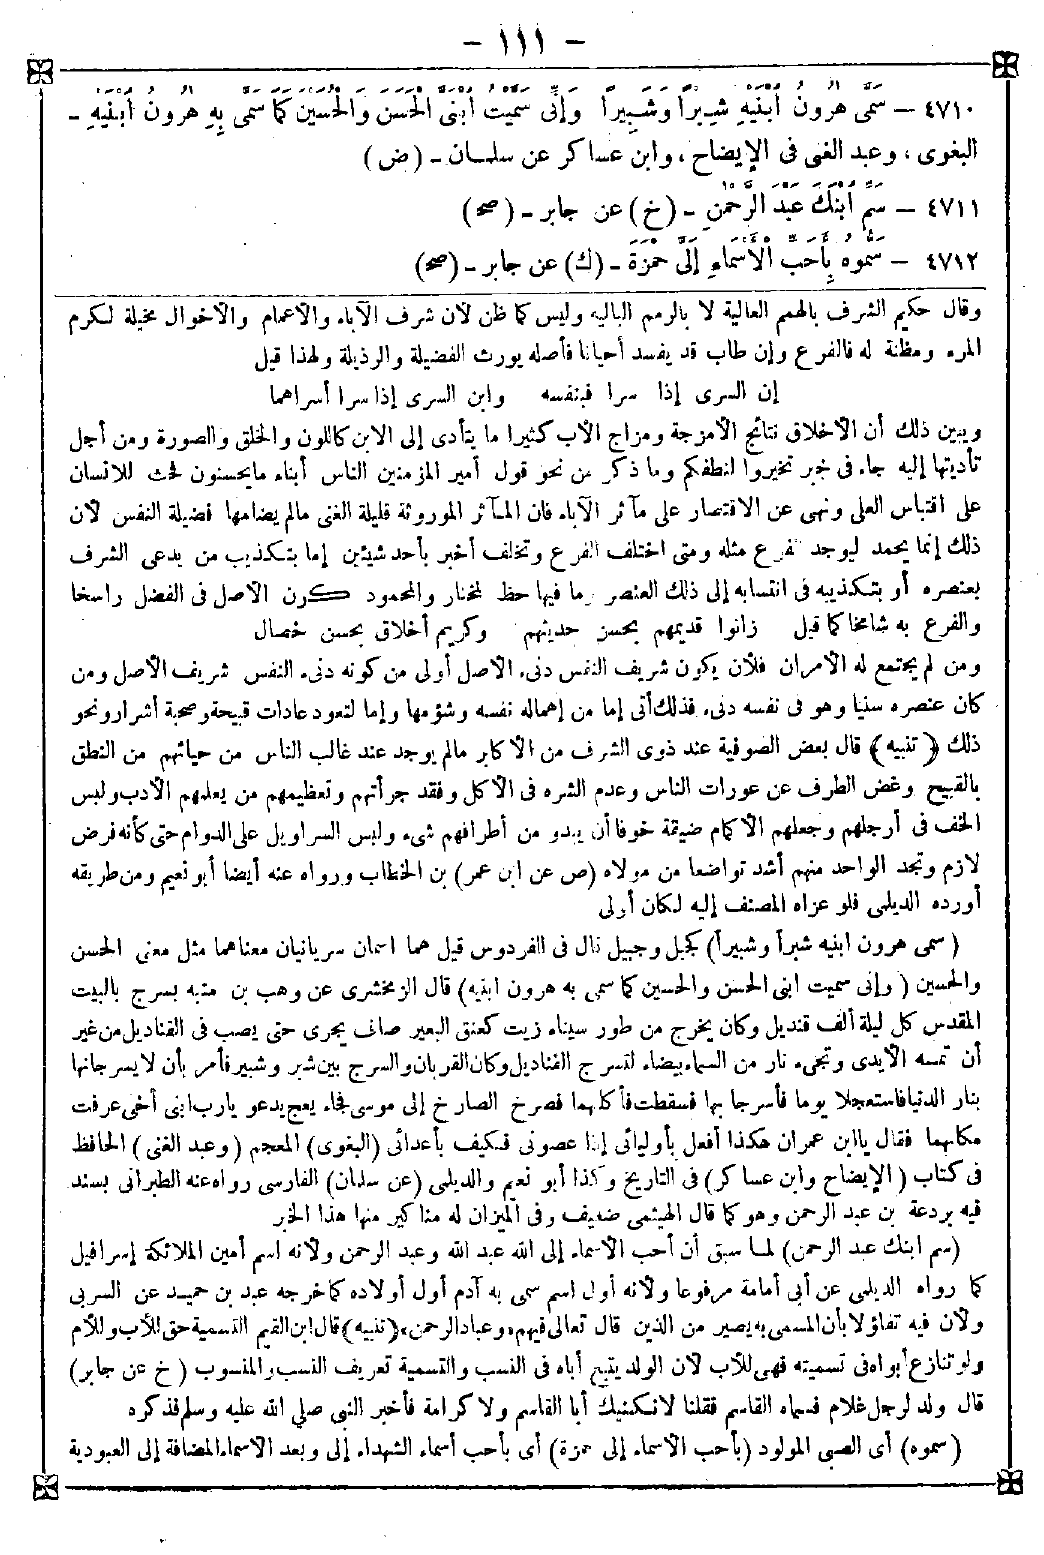 - ١١١ -
٤٧١٠ - سَمَّى هٰرُونُ ٱبْنَيْهِ شَبَّرًا وَشَبِيرًا وَإِنِّي سَمَّيْتُ ٱبْنَيَّ الْحَسَنَ وَالْحُسَيْنَ كَمَا سَمَّى بِهِ هٰرُونُ ٱبْنَيْهِ -
البغوى ، وعبد الغنى فى الإيضاح ، وابن عساكر عن سلمان - (ض)
٤٧١١ - سَمِّ ٱبْنَكَ عَبْدَ الرَّحْمٰنِ - (خ) عن جابر - (صح)
٤٧١٢ - سَمُّوهُ بِأَحَبِّ الْأَسْمَاءِ إِلَىَّ حَمْزَةَ - (ك) عن جابر - (صح)
وقال حكيم الشرف بالهمم العالية لا بالرمم البالية وليس كما ظن لأن شرف الآباء والأعمام والأخوال مخيلة لكرم
المرء ومظنة له فالفرع وإن طاب قد يفسد أحيانا فأصله يورث الفضيلة والرذيلة ولهذا قيل
إن السرى إذا سرا فبنفسه وابن السرى إذا سرا أسراهما
ويبين ذلك أن الأخلاق نتائج الأمزجة ومزاج الأب كثيرا ما يتأدى إلى الابن كاللون والخلق والصورة ومن أجل
تأديتها إليه جاء فى خبر تخيروا لنطفكم وما ذكر من نحو قول أمير المؤمنين الناس أبناء مايحسنون فحث للانسان
على اقتباس العلى ونهى عن الاقتصار على مآثر الآباء فان المآثر الموروثة قليلة الغنى مالم يضامها فضيلة النفس لأن
ذلك إنما يحمد ليوجد الفرع مثله ومتى اختلف الفرع وتخلف أخبر بأحد شيئين إما بتكذيب من يدعى الشرف
بعنصره أو بتكذيبه فى انتسابه إلى ذلك العنصر وما فيها حظ لمختار والمحمود كون الأصل فى الفضل راسخا
والفرع به شامخا كما قيل زانوا قديمهم بحسن حديثهم وكريم أخلاق بحسن خصال
ومن لم يجتمع له الأمران فلأن يكون شريف النفس دنىء الأصل أولى من كونه دنىء النفس شريف الأصل ومن
كان عنصره سنيا وهو فى نفسه دنىء فذلك أتى إما من إهماله نفسه وشؤمها وإما لتعود عادات قبيحة وصحبة أشرار ونحو
ذلك ﴿ تنبيه ﴾ قال بعض الصوفية عند ذوى الشرف من الأكابر مالم يوجد عند غالب الناس من حيائهم من النطق
بالقبيح وغض الطرف عن عورات الناس وعدم الشره فى الأكل وفقد جرأتهم وتعظيمهم من يعلمهم الأدب وليس
الخف فى أرجلهم وجعلهم الأكمام ضيقة خوفا أن يبدو من أطرافهم شىء ولبس السراويل على الدوام حتى كأنه فرض
لازم وتجد الواحد منهم أشد تواضعا من مولاه (ص عن ابن عمر) بن الخطاب ورواه عنه أيضا أبو نعيم ومن طريقه
أورده الديلمى فلو عزاه المصنف إليه لكان أولى
(سمى هرون ابنيه شبرا وشبيرا) كجبل وجبيل قال فى الفردوس قيل هما اسمان سريانيان معناهما مثل معنى الحسن
والحسين (وإنى سميت ابنى الحسن والحسين كما سمى به هرون ابنيه) قال الزمخشرى عن وهب بن منبه يسرج بالبيت
المقدس كل ليلة ألف قنديل وكان يخرج من طور سيناء زيت كعنق البعير صاف يجرى حتى يصب فى القناديل من غير
أن تمسه الأيدى وتجىء نار من السماء بيضاء لتسرج القناديل وكان القربان والسرج بين شبر وشبير فأمر بأن لا يسرجانها
بنار الدنيا فاستعجلا يوما فأسرجا بها فسقطت فأكلهما فصرخ الصارخ إلى موسى فجاء يعج يدعو يارب ابنى أخى عرفت
مكانهما فقال ياابن عمران هكذا أفعل بأوليائى إذا عصونى فكيف بأعدائى (البغوى) المعجم (وعبد الغنى) الحافظ
فى كتاب (الإيضاح وابن عساكر) فى التاريخ وكذا أبو نعيم والديلمى (عن سلمان) الفارسى رواه عنه الطبرانى بسند
فيه بردعة بن عبد الرحمن وهو كما قال الهيثمى ضعيف وفى الميزان له مناكير منها هذا الخبر
(سم ابنك عبد الرحمن) لما سبق أن أحب الأسماء إلى الله عبد الله وعبد الرحمن ولأنه اسم أمين الملائكة إسرافيل
كما رواه الديلمى عن أبى أمامة مرفوعا ولأنه أول اسم سمى به آدم أول أولاده كما خرجه عبد بن حميد عن السربى
ولأن فيه تفاؤلا بأن المسمى به يصير من الذين قال تعالى فيهم «وعباد الرحمن» ﴿تنبيه﴾ قال ابن القيم التسمية حق للأب وللأم
ولو تنازع أبواه فى تسميته فهى للأب لأن الولد يتبع أباه فى النسب والتسمية تعريف النسب والمنسوب (خ عن جابر)
قال ولد لرجل غلام فسماه القاسم فقلنا لانكنيك أبا القاسم ولا كرامة فأخبر النبى صلى الله عليه وسلم فذكره
(سموه) أى الصبى المولود (بأحب الأسماء إلى حمزة) أى بأحب أسماء الشهداء إلى وبعد الأسماء المضافة إلى العبودية